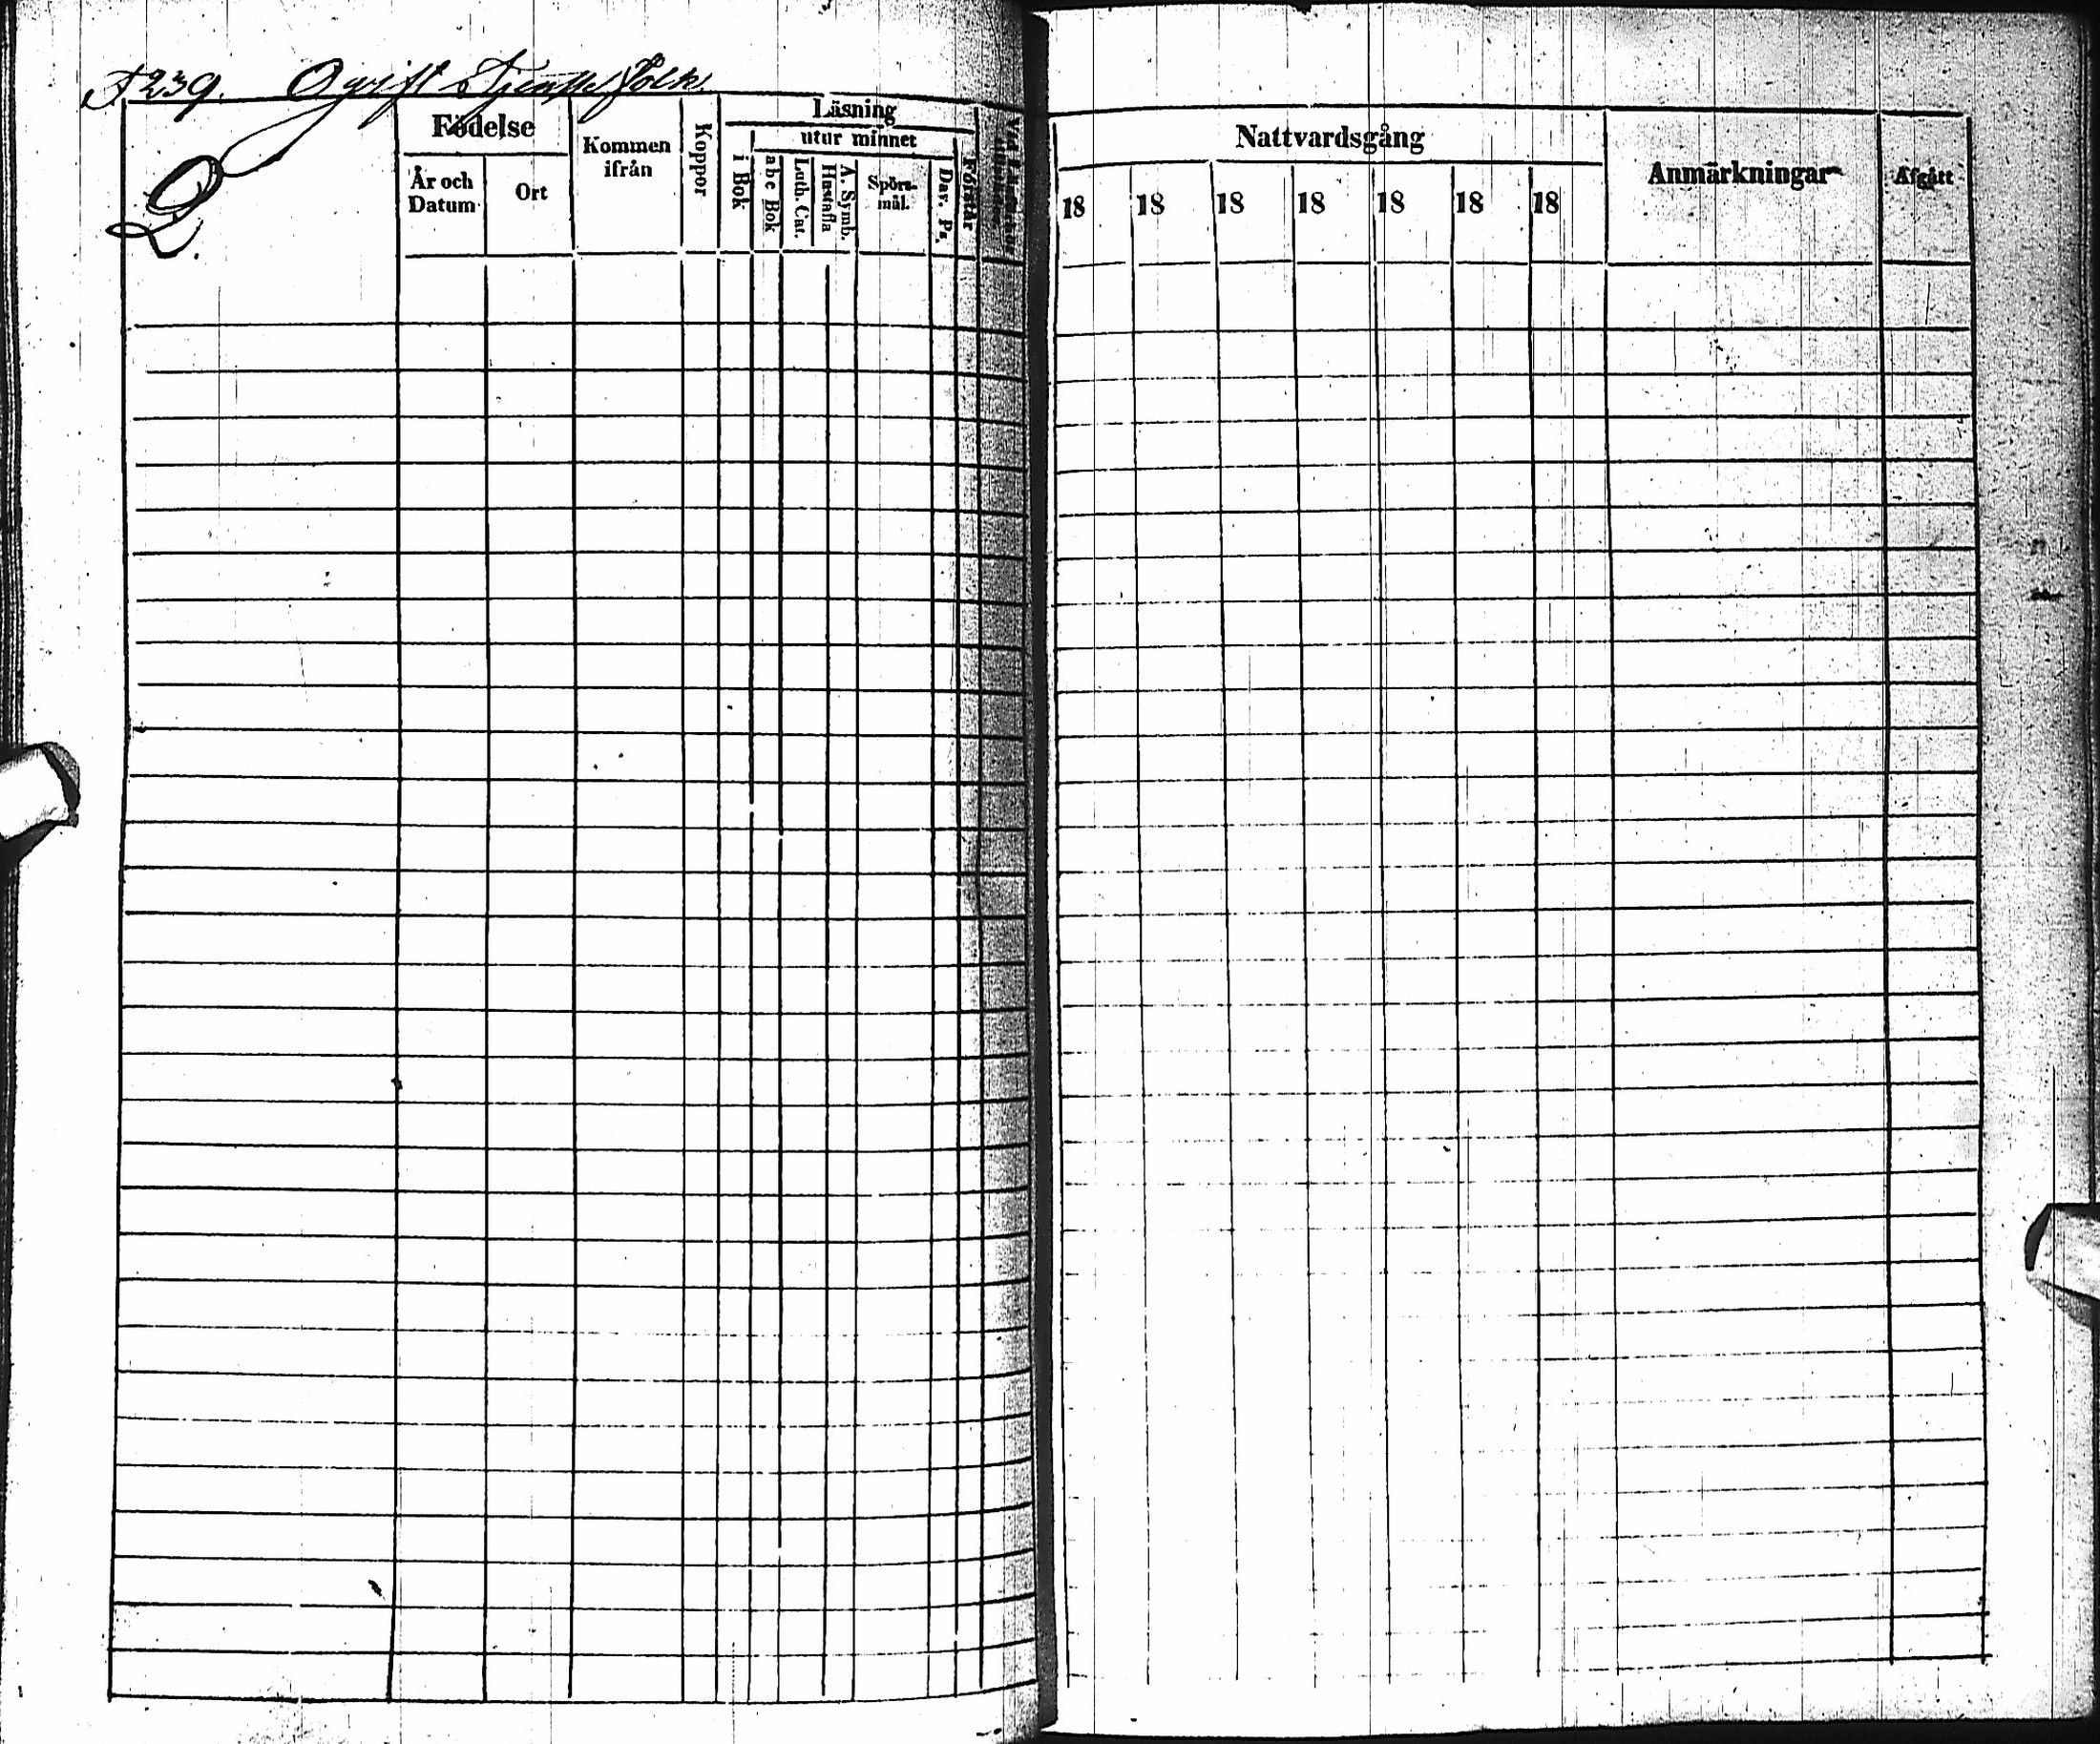 239. Ogift Tjenste folk.
Q.
Födelse
År och Datum
Ort
Kommen ifrån
Koppor
Läsning
i Bok
utur minnet
abc Bok
Luth. Cat.
A. Symb. Hustafla
Spörs-mål.
Dav. Ps.
Förstår
Nattvardsgång
18 18 18 18 18 18 18
Anmärkningar
Afgått